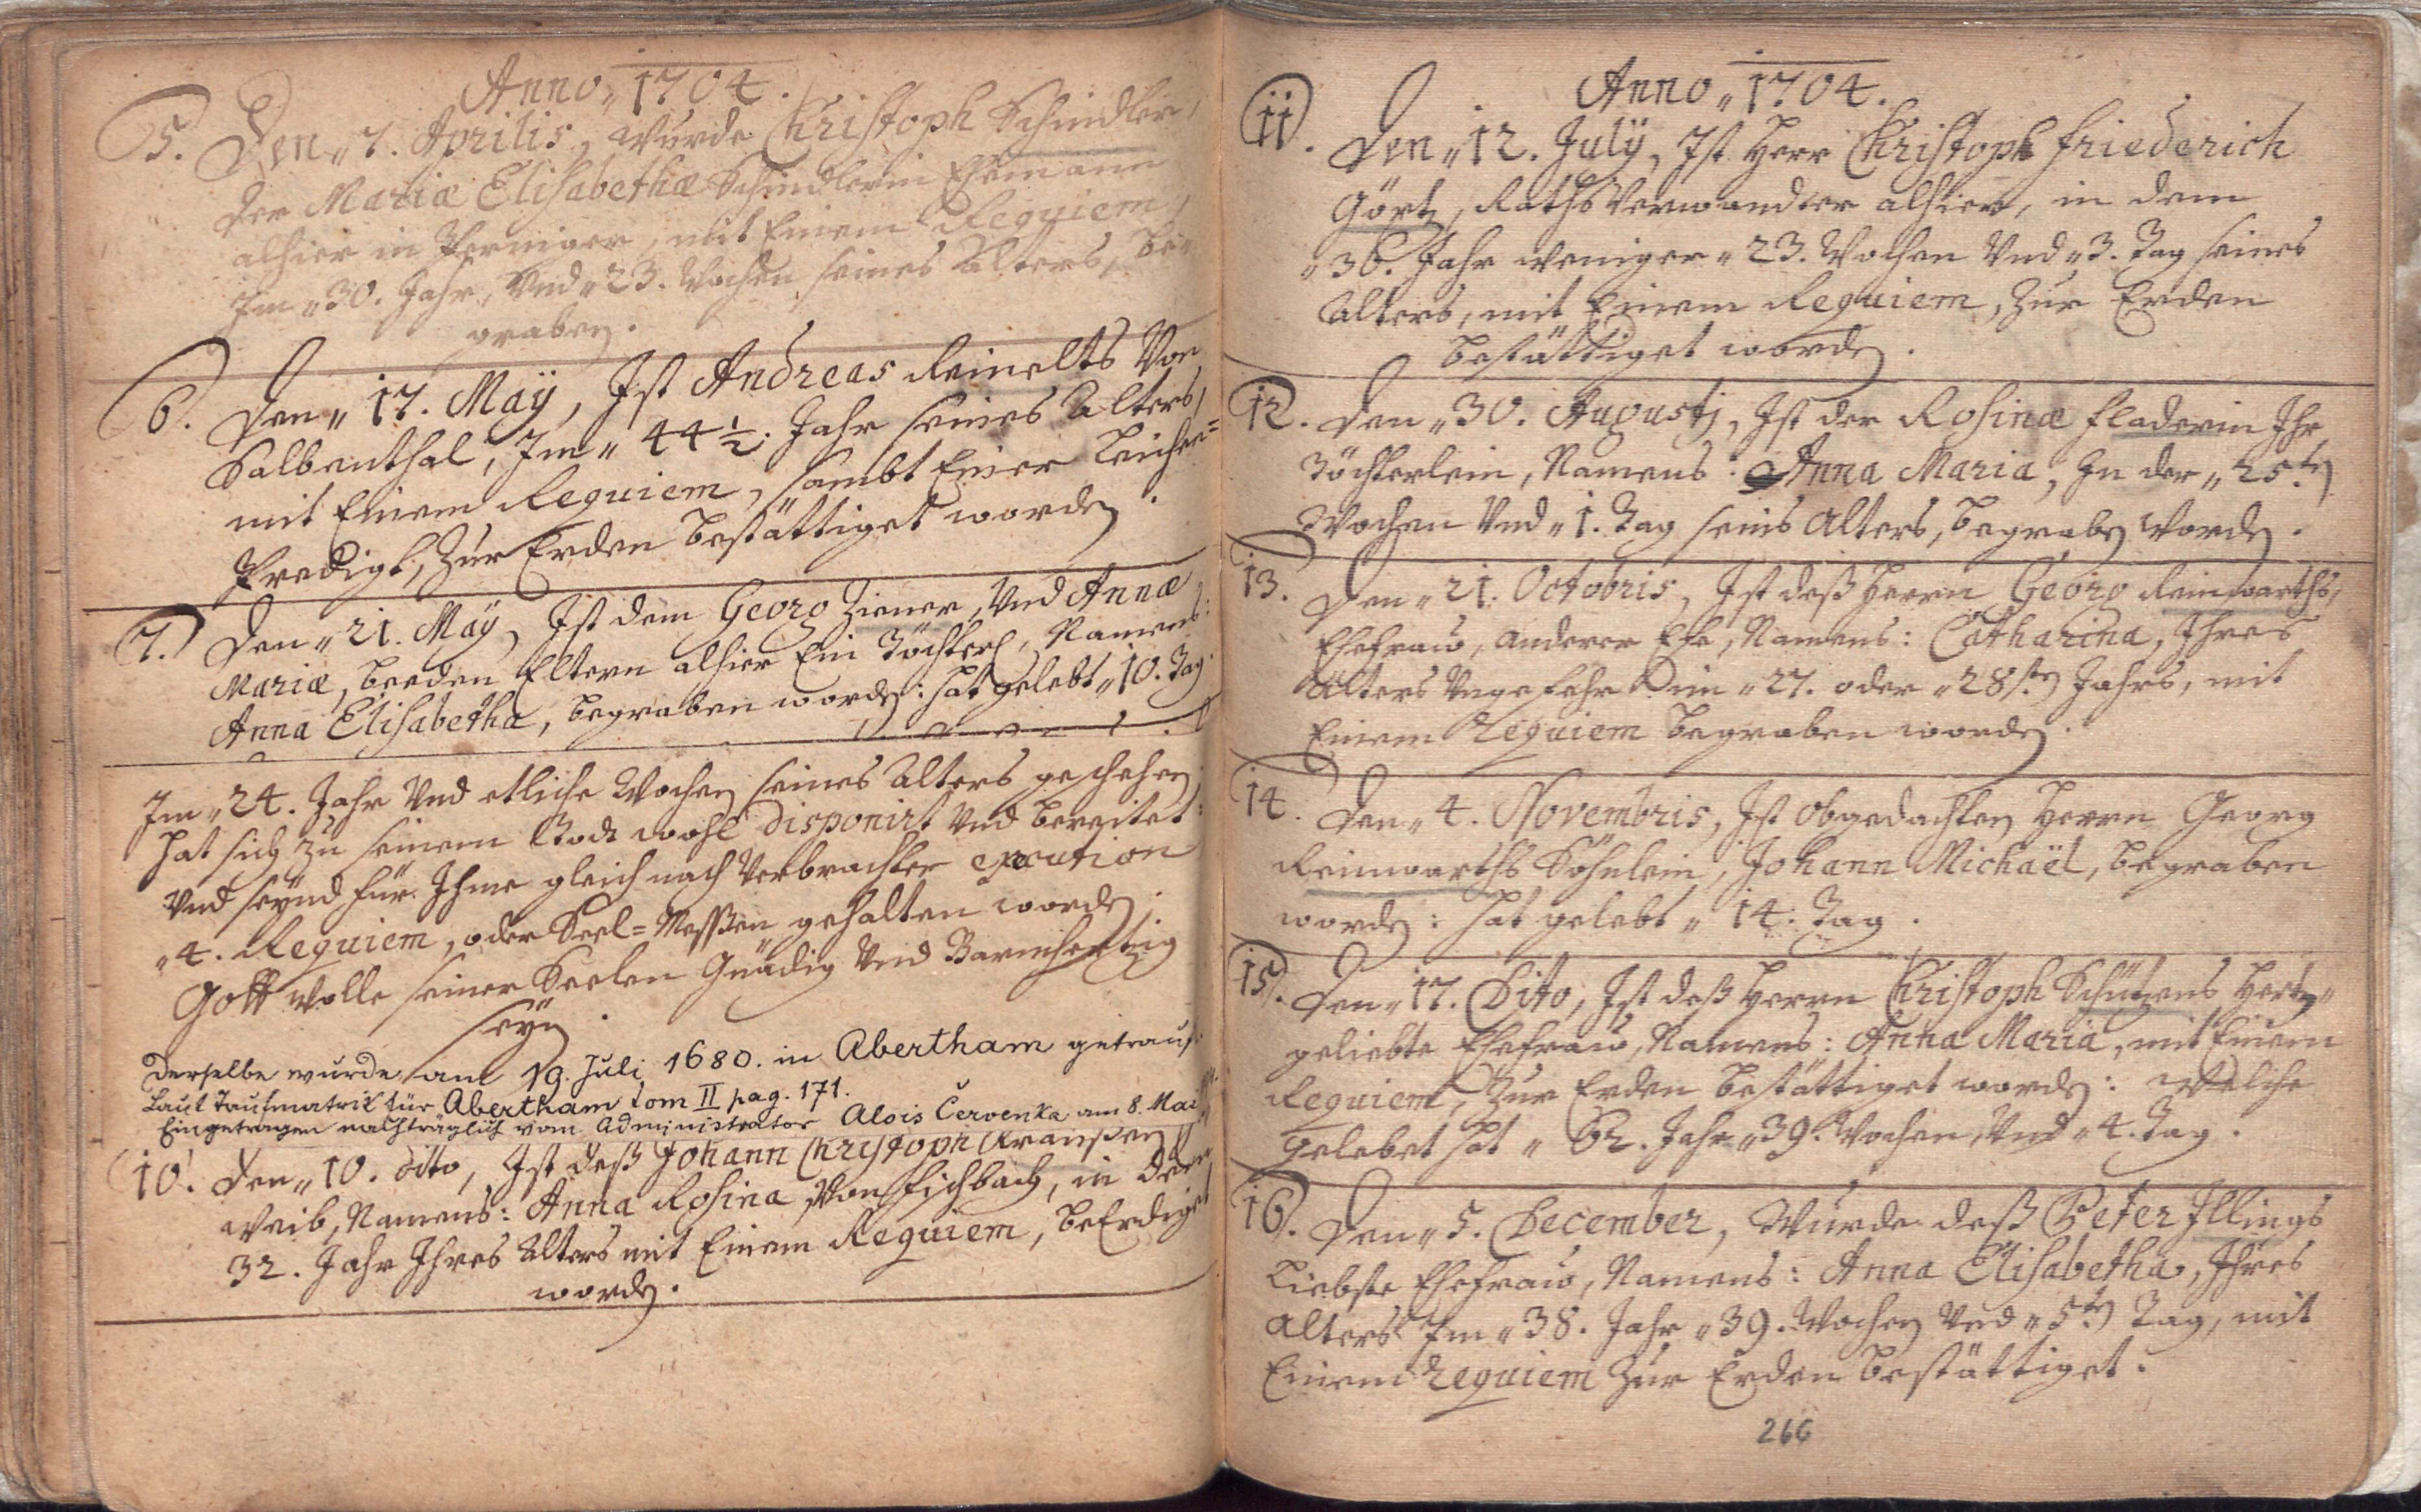 Anno„ 1704.
5. Den„ 7. Aprilis, wurde Christoph Schindler,
der Mariæ Elisabethæ Schindlerin Ehemann
alhier in Perniger, mit Einem Requiem,
Im„ 30. Jahr, Vnd„ 23. Wochen seines Alters, be„
graben.
6. Den„ 17. Maÿ, Ist Andreas Reinelts Von
Salbenthal, Im„ 44½. Jahr seines Alters,
mit Einem Requiem, sambt Einer Leichen=
Predigt, Zur Erden bestättiget worden.
7. Den„ 21. Maÿ, Ist dem Georg Ziener, Vnd Annæ
Mariæ, beeden Eltern alhier Ein Töchterl, Namens:
Anna Elisabetha, begraben worden: hat gelebt„ 10. Tag.
Im„ 24. Jahr Vnd etliche Wochen seines Alters geschehen
hat sich zu seinem Todt wohl disponirt Vnd bereitet:
Vnd seÿnd für Ihme gleich nach Verbrachter execution
„4. Requiem, oder Seel=Messen gehalten worden.
Gott wolle seiner Seelen Gnädig Vnd Barmhertzig
seÿn.
Derselbe wurde am 19. Juli 1680. in Abertham getauft
Laut Taufmatrik für Abertham tom II pag. 171.
Eingetragen nachträglich vom Administrator Alois Červenka am 8. Mai
10. Den„ 10. dito, Ist deß Johann Christoph Kraußen
Weib, Namens: Anna Rosina Von Fischbach, in dem
32. Jahr Ihres Alters mit Einem Requiem, beErdiget
worden.
Anno„ 1704.
11. Den„ 12. Julÿ, Ist Herr Christoph Friederich
Görtz, RathsVerwandter alhier, in dem
„36. Jahr weniger„ 23. Wochen Vnd„ 3. Tag seines
Alters, mit Einem Requiem, Zur Erden
bestättiget worden.
12. Den„ 30. Augustj, Ist der Rosinæ Fladerin Ihr
Töchterlein, Namens: Anna Maria, In der„ 25.ten
Wochen Vnd„ 1. Tag seins Alters, begraben worden.
13. Den„ 21. Octobris, Ist deß Herrn Georg Reinwarths,
Ehefraw, anderer Ehe, Namens: Catharina, Ihres
Alters Vngefehr Im„ 27. oder„ 28.ten Jahrs, mit
Einem Requiem begraben worden.
14. Den„ 4. Novembris, Ist obgedachten Herrn Georg
Reinwarths Söhnlein, Johann Michaël, begraben
worden: hat gelebt„ 14. Tag.
15. Den„ 17. Dito, Ist deß Herrn Christoph Schützens Hertz„
geliebte Ehefraw, Namens: Anna Maria, mit Einem
Requiem, Zur Erden bestättiget worden: Welche
gelebet hat„ 52. Jahr„ 39. Wochen, Vnd„ 4. Tag.
16. Den„ 5. December, Wurde deß Peter Illings
Liebste Ehefraw, Namens: Anna Elisabetha, Ihres
Alters Im„ 38. Jahr„ 39. Wochen Vnd„ 5.ten Tag, mit
Einem Requiem Zur Erden bestättiget.
266